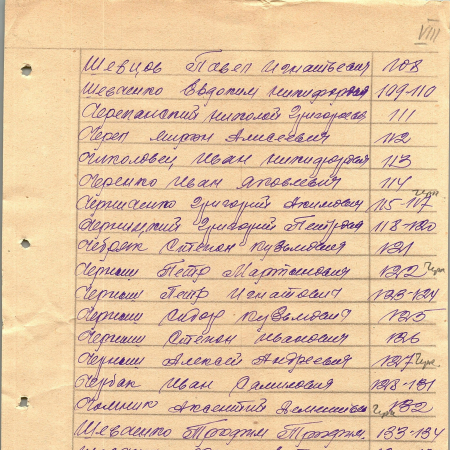 VIII
Шевцов Павел Игнатьевич 108
Шевченко Евдоким Никифорович 109-110
Черепанский Николай Григорьев 111
Череп Мирон Алисеевич 112
Чиколовец Иван Никифорович 113
Черенко Иван Яковлевич 114
Черниченко Григорий Акимович 115-117
Черницкий Григорий Петрович 118-120
Чебряк Степан Кузьмович 121
Черныш Петр Мартынович 122
Черныш Петр Игнатович 123-124
Черныш Сидор Кузьмович 125
Черныш Степан Иванович 126
Черныш Алексей Андреевич 127
Чербак Иван Салимович 128-131
Чомник Аксентий 132
Шевченко Трофим Трофим. 133-134